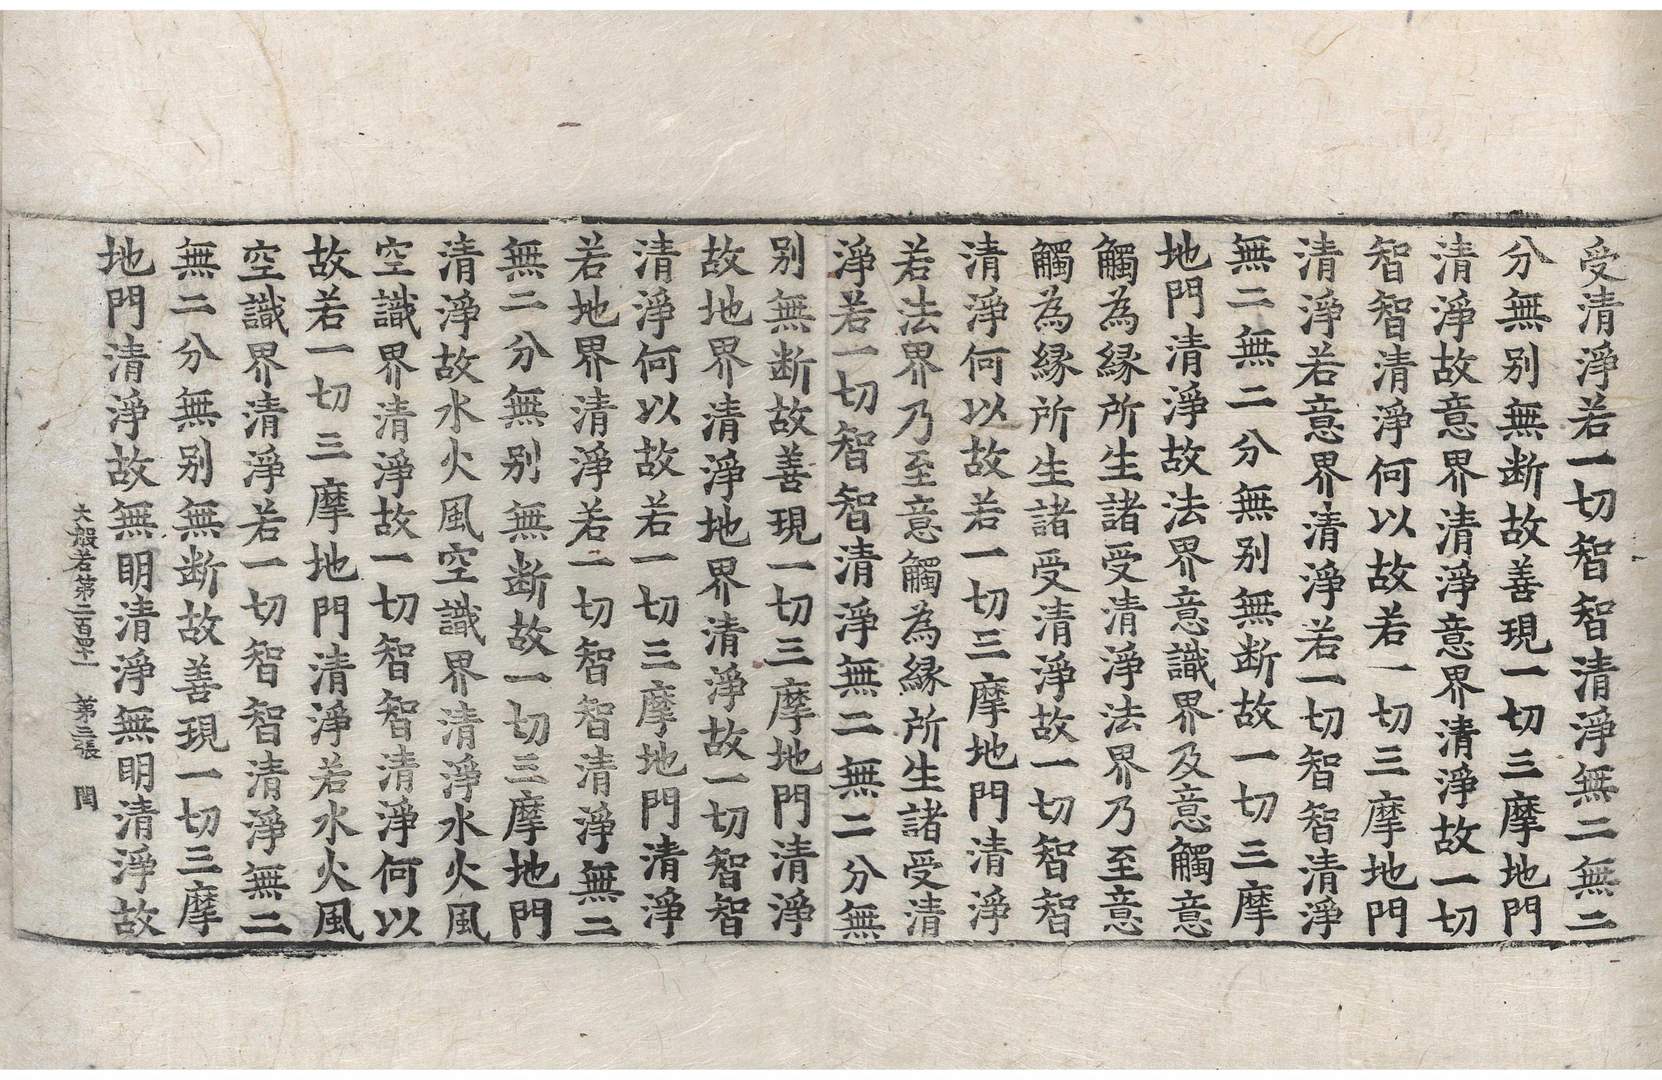 受清淨若一切智智清淨無二無二
分無别無断故善現一切三摩地門
清淨故意界清淨意界清淨故一切
智智清淨何以故若一切三摩地門
清淨若意界清淨若一切智智清淨
無二無二分無别無断故一切三摩
地門清淨故法界意識界及意觸意
觸為縁所生諸受清淨法界乃至意
觸為縁所生諸受清淨故一切智智
清淨何以故若一切三摩地門清淨
若法界乃至意觸為縁所生諸受清
淨若一切智智清淨無二無二分無
别無断故善現一切三摩地門清淨
故地界清淨地界清淨故一切智智
清淨何以故若一切三摩地門清淨
若地界清淨若一切智智清淨無二
無二分無别無断故一切三摩地門
清淨故水火風空識界清淨水火風
空識界清淨故一切智智清淨何以
故若一切三摩地門清淨若水火風
空識界清淨若一切智智清淨無二
無二分無别無断故善現一切三摩
地門清淨故無明清淨無明清淨故
大般若第二百四十一 第三張 閏